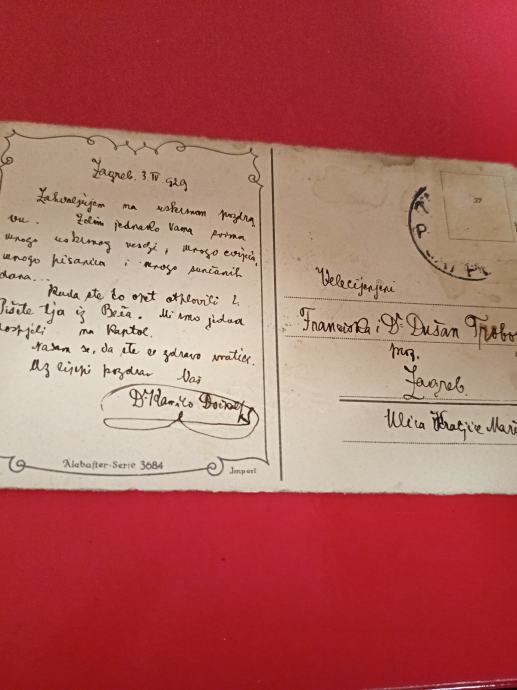 Zagreb. 3. IV. 929
Zahvaljujem na uskrsnom pozdra
vu. Želim jednako Vama prima
mnogo uskrsnog veselja, mnogo cvijeća,
mnogo pisanica i mnogo sunčanih
dana...
Kuda ste to opet otplovili
Pišete tja iz Beča. Mi smo jedva
dospjeli na Kaptol.
Nadam se, da ste se zdravo vratili.
Uz lijepi pozdrav Vaš
Dr Kamilo
Alabaster-Serie 3684
Import
Velecijenjeni
Franciska i Dr. Dušan
Zagreb
Ulica Kraljice Mari